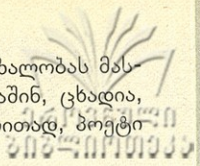 ხალობას მას-
აშინ, ცხადია,
ითად, პოეტი